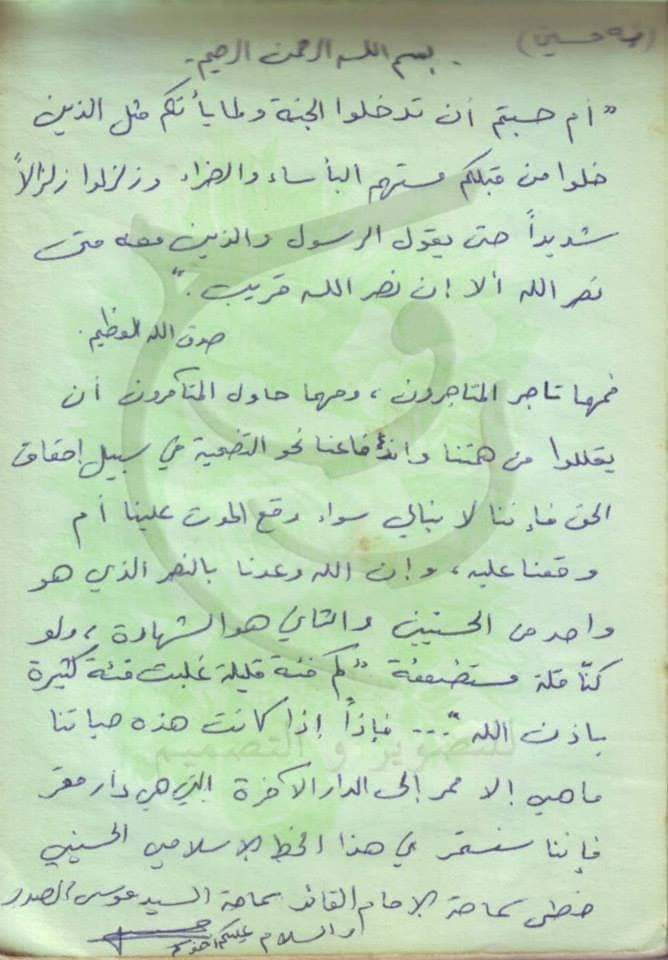 بسم الله الرحمن الرحيم.
" أم حسبتم أن تدخلوا الجنة ولما يأتكم مثل الذين
خلوا من قبلكم مستهم البأساء والضراء وزلزلوا زلزالاً
شديداً حتى يقول الرسول والذين معه متى
نصر الله ألا إن نصر الله قريب."
صدق الله العظيم.
فمهما تاجر المتاجرون، ومهما حاول المتآمرون أن
يقللوا من همتنا واندفاعنا نحو التضحية في سبيل إحقاق
الحق فإننا لا نبالي سواء وقع الموت علينا أم
وقعنا عليه، وإن الله وعدنا بالنصر الذي هو
واحد من الحسنيين والثاني هو الشهادة، ولو
كنّا قلة مستضعفة "كم فئة قليلة غلبت فئة كثيرة
بإذن الله"... فإذاً إذا كانت هذه حياتنا
ما هي إلا ممر إلى الدار الآخرة التي هي دار مقر
فإننا سنستمر في هذا الخط الإسلامي الحسيني
خطى سماحة الإمام القائد سماحة السيد موسى الصدر
والسلام عليكم أخوكم
للتصوير و التصميم